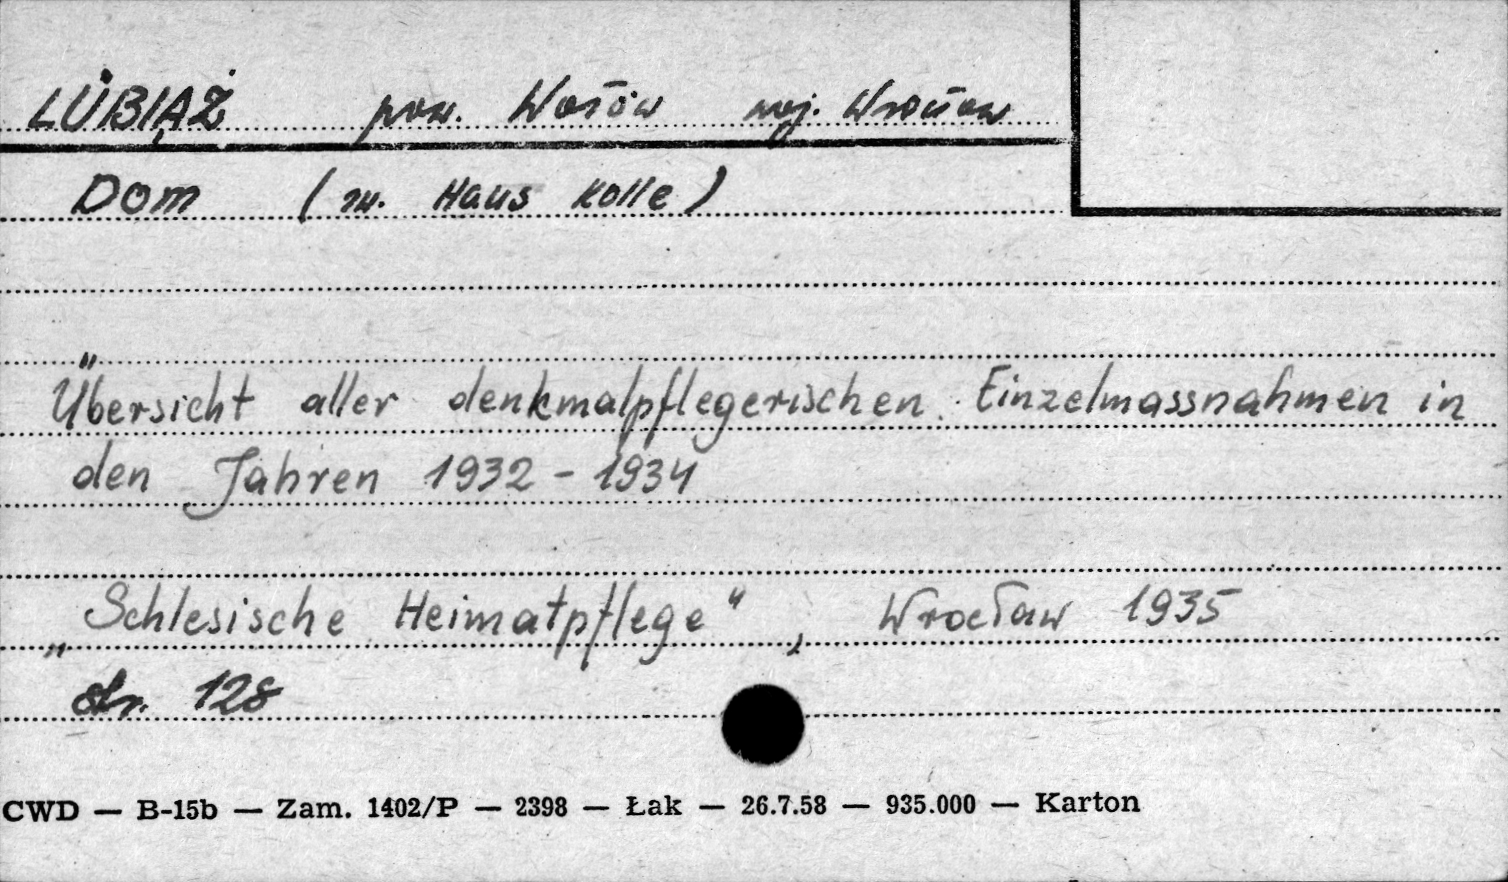 LUBIĄŻ pow. Wołów woj. Wrocław
Dom (zw. Haus Kolle)
Übersicht aller denkmalpflegerischen Einzelmassnahmen in
den Jahren 1932 - 1934
„Schlesische Heimatpflege", Wrocław 1935
str. 128
CWD — B-15b — Zam. 1402/P — 2398 — Łak — 26.7.58 — 935.000 — Karton